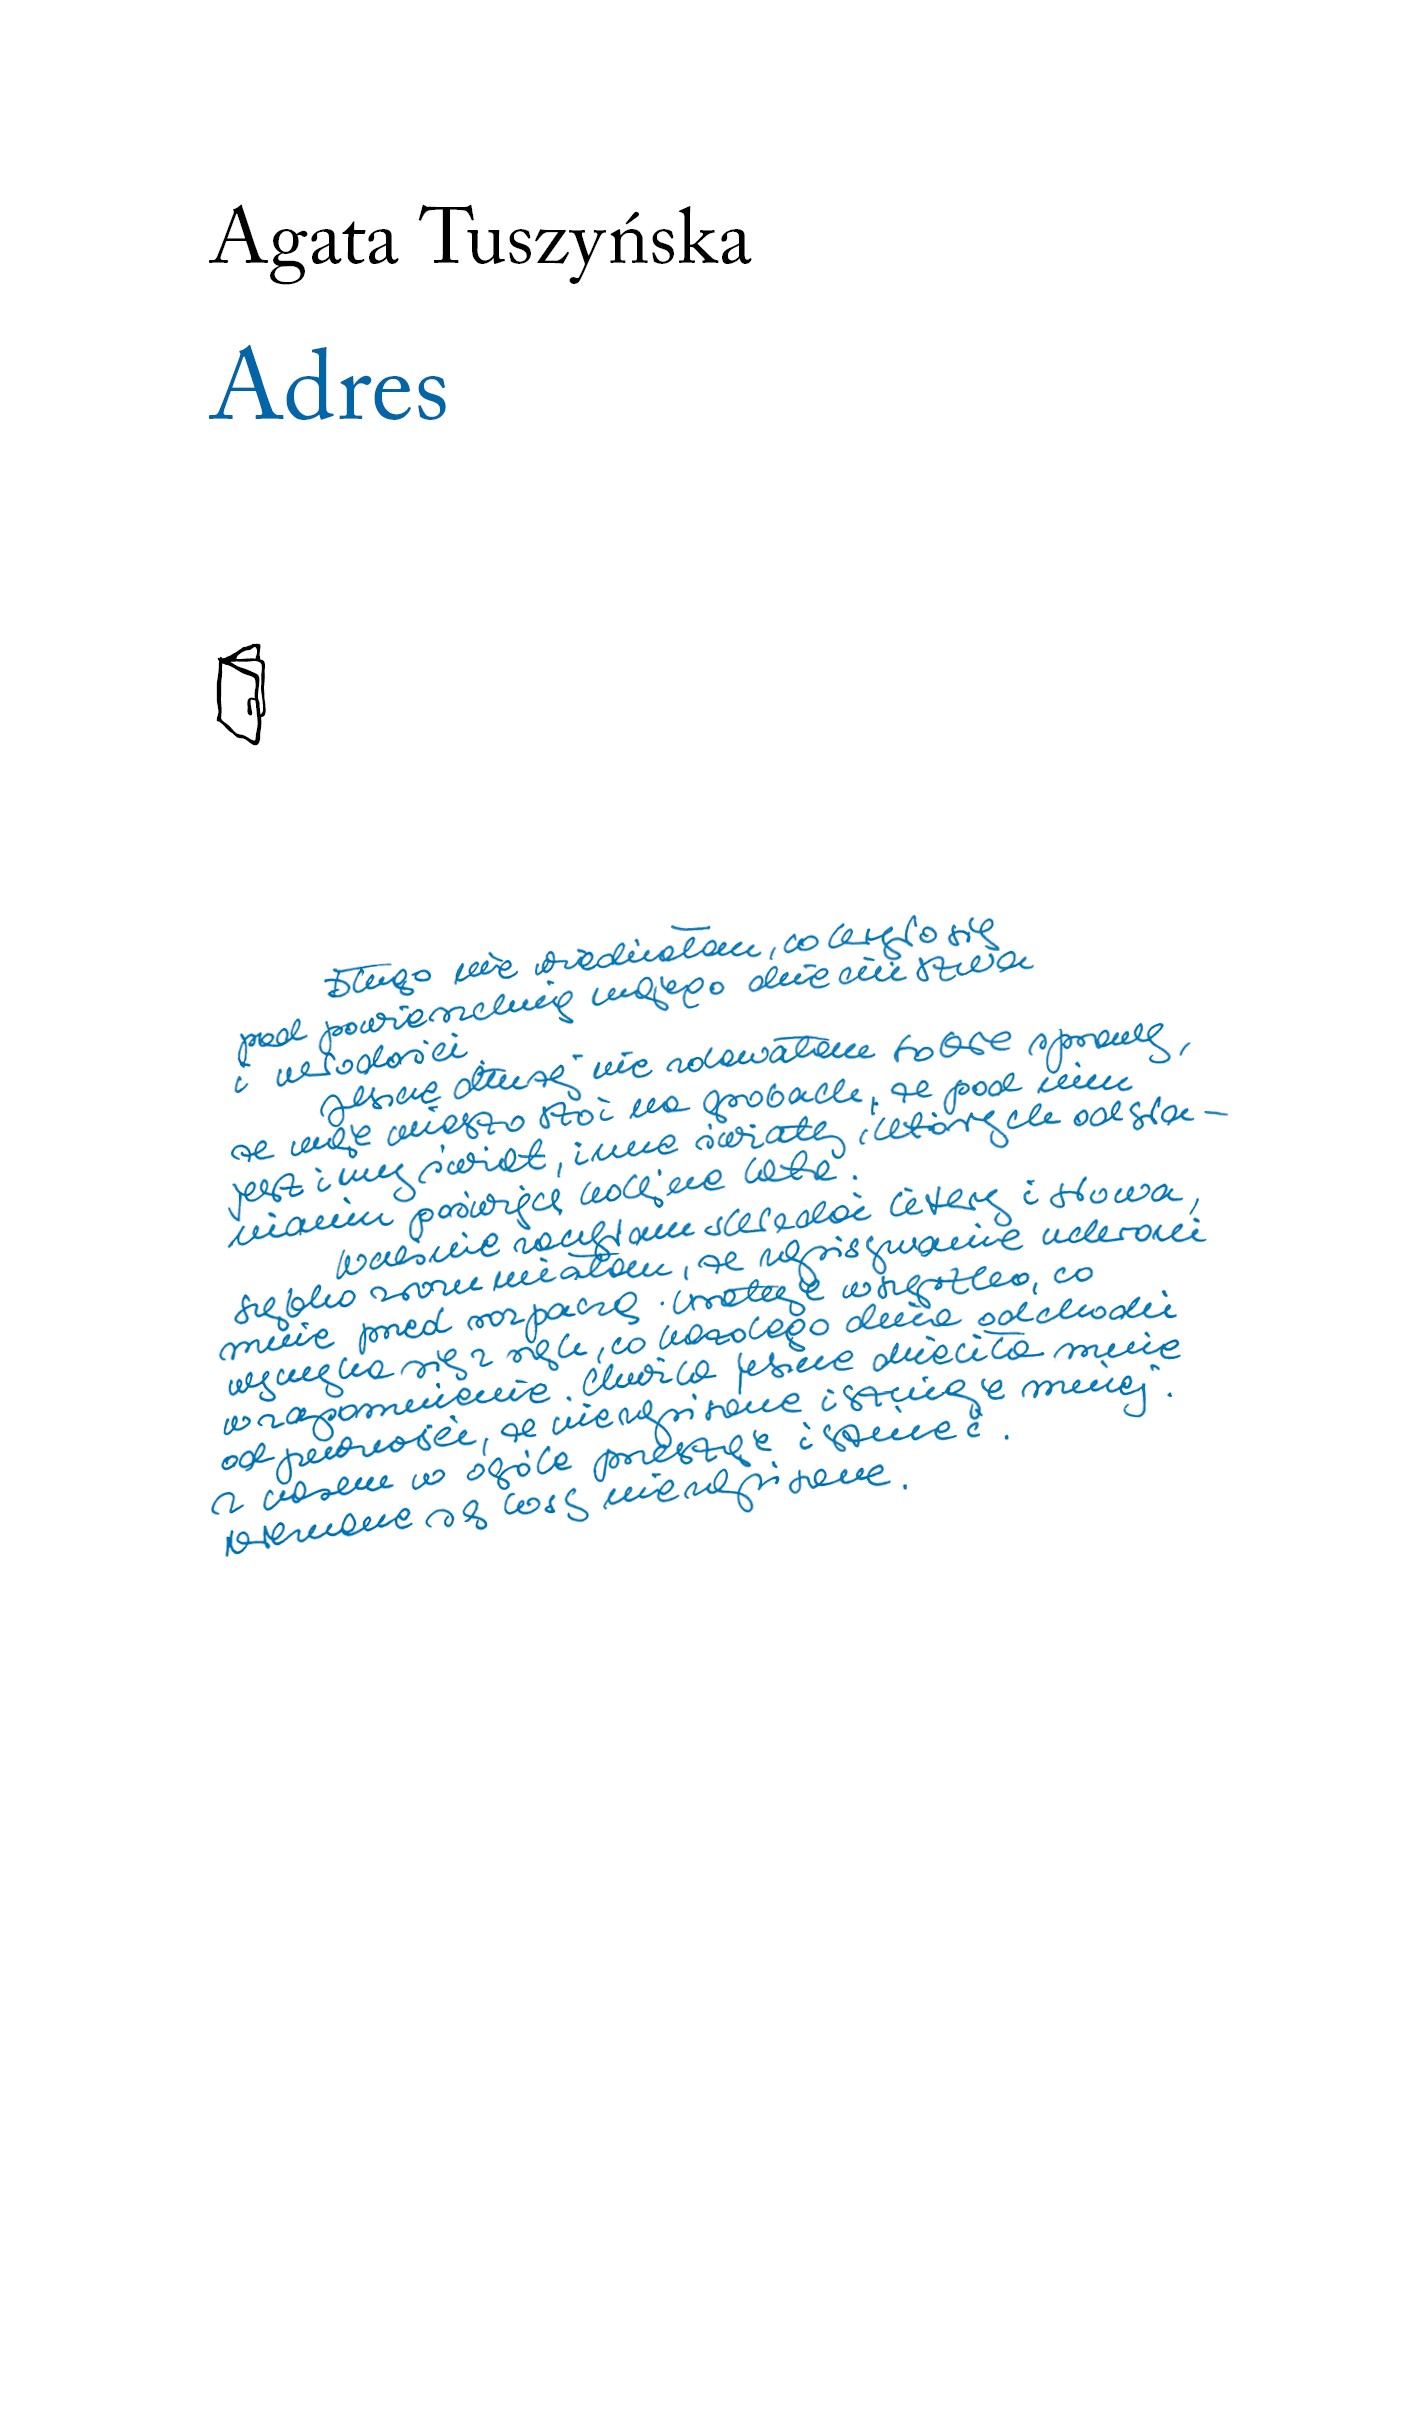 Agata Tuszyńska
Adres
Długo nie wiedziałam, co kryło się
pod powierzchnią mojego dzieciństwa
i młodości.
Jeszcze dłużej nie zdawałam sobie sprawy,
że moje miasto stoi na grobach, że pod nim
jest inny świat, inne światy, których odsła-
nianiu poświęcę kolejne lata.
Wcześnie zaczęłam składać litery i słowa,
szybko zrozumiałam, że zapisywanie uchroni
mnie przed rozpaczą. Uratuje wszystko, co
wymyka się z rąk, co każdego dnia odchodzi
w zapomnienie. Chwila jeszcze dzieliła mnie
od pewności, że niezapisane istnieje mniej.
Z czasem w ogóle przestaje istnieć.
są losy niezapisane.